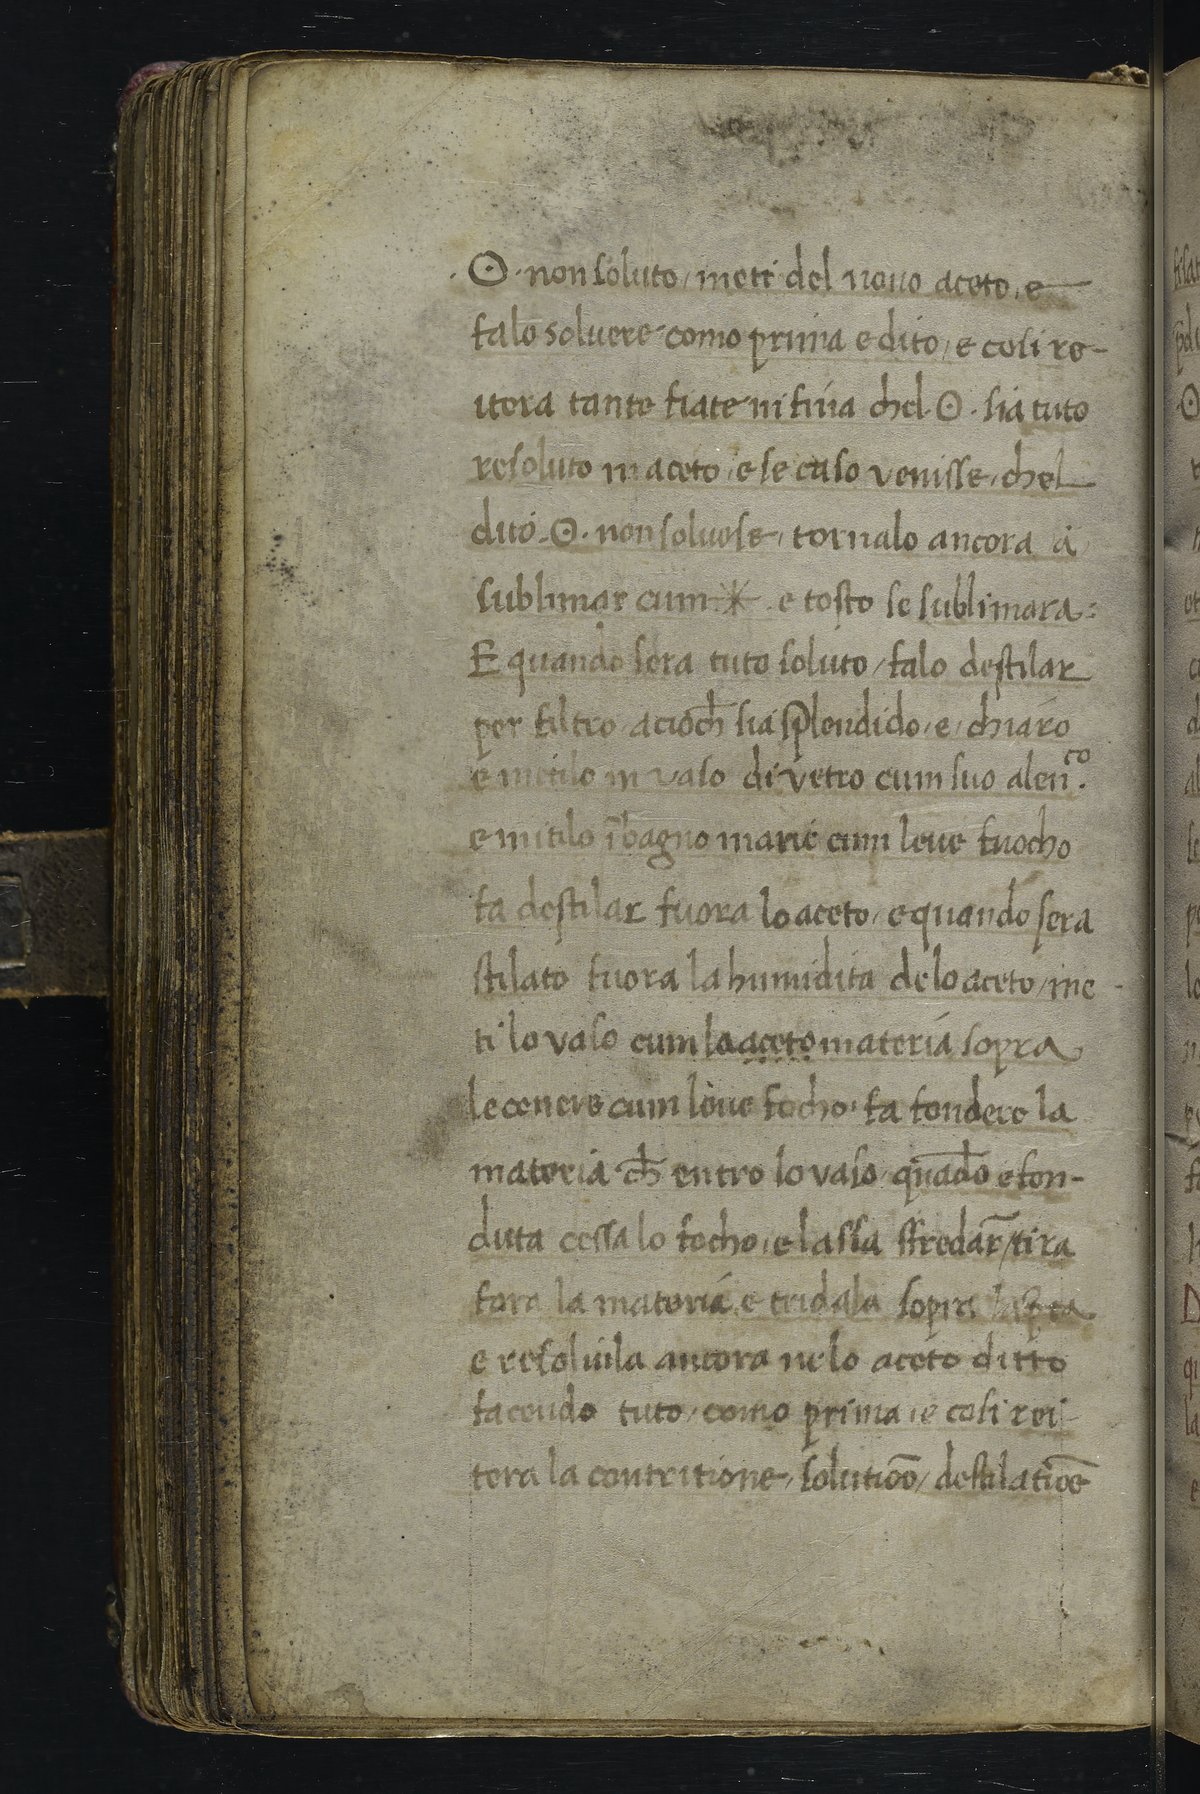 · ☉ · non soluto / meti del novo aceto, e
falo solvere como prima e dito, e cosi re-
itera tante fiate in fina chel ☉ · sia tuto
resoluto in aceto, e se caso venisse, chel
dito ☉ · non solvese, tornalo ancora a
sublimar cum ✳ e tosto se sublimara:
E quando sera tuto soluto / falo destilar
per filtro acioch̄ sia splendido, e, chiaro
e metilo in vaso di vetro cum suo alen͂ᶜᵒ.
e mitilo ī bagno marie cum leve fuocho
fa destilar fuora lo aceto, e quando sera
stilato fuora la humidita de lo aceto / me-
ti lo vaso cum lo aceto materia sopra
le cenere cum leve focho, fa fondere la
materia ch̄ entro lo vaso, quādo e fon-
duta cessa lo focho, e lassa sfredar̄ / tira
fora la materia, e tridala sopra
e resolvila ancora ne lo aceto ditto
facendo tuto, como prima, e cosi rei
tera la contritione, solutiōe / destilatiōe